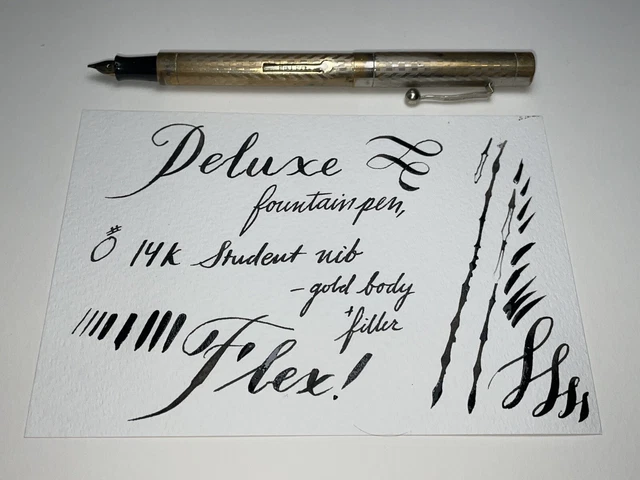 Deluxe
fountain pen,
14K Student nib
- gold body
+ filler
Flex!